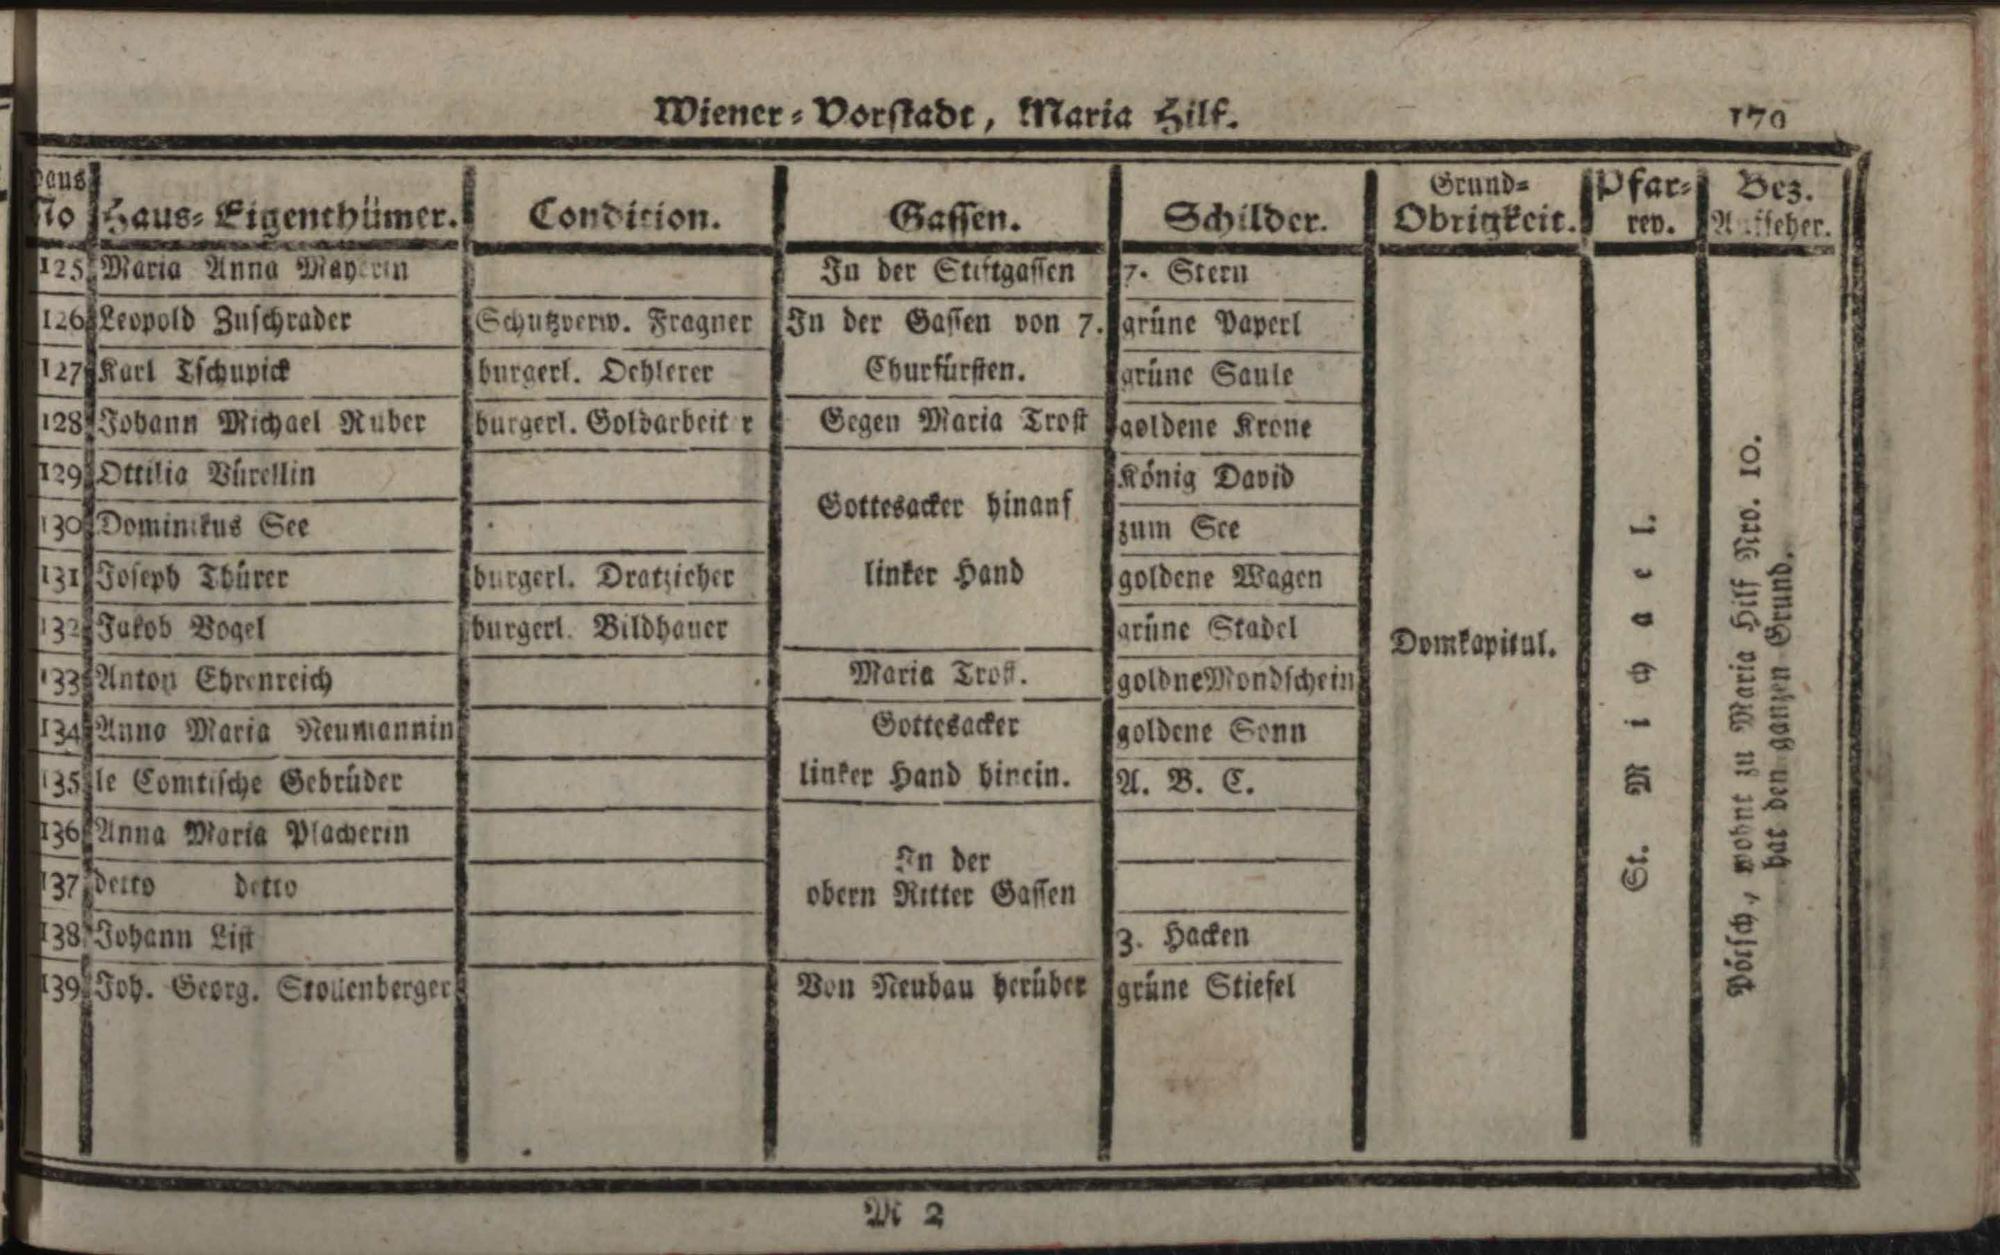 Wiener-Vorstadt, Maria Hilf.
179
Haus No
Haus-Eigenthümer.
Condition.
Gassen.
Schilder.
Grund-Obrigkeit.
Pfarreyen.
Bez. Aufseher.
125 Maria Anna Mayerin In der Stiftgassen 7. Stern
126 Leopold Zuschrader Schutzverw. Fragner In der Gassen von 7. grüne Paperl
127 Karl Tschupick burgerl. Oehlerer Churfürsten. grüne Saule
128 Johann Michael Ruber burgerl. Goldarbeit r Gegen Maria Trost goldene Krone
129 Ottilia König David
Gottesacker hinauf
130 Dominikus See zum See
131 Joseph Thürer burgerl. Dratzieher linker Hand goldene Wagen
132 Jakob Vogel burgerl. Bildhauer grüne Stadel
133 Anton Ehrenreich Maria Trost. goldne Mondschein
134 Anna Maria Neumannin Gottesacker goldene Sonn
135 le Comtische Gebrüder linker Hand hinein. A. B. C.
136 Anna Maria Placherin
In der
137 detto detto obern Ritter Gassen
138 Johann List 3. Hacken
139 Joh. Georg. Stollenberger Von Neubau herüber grüne Stiefel
Domkapitul.
St. Michael.
Pötsch, wohnt zu Maria Hilf Nro. 10.
hat den ganzen Grund.
M 2